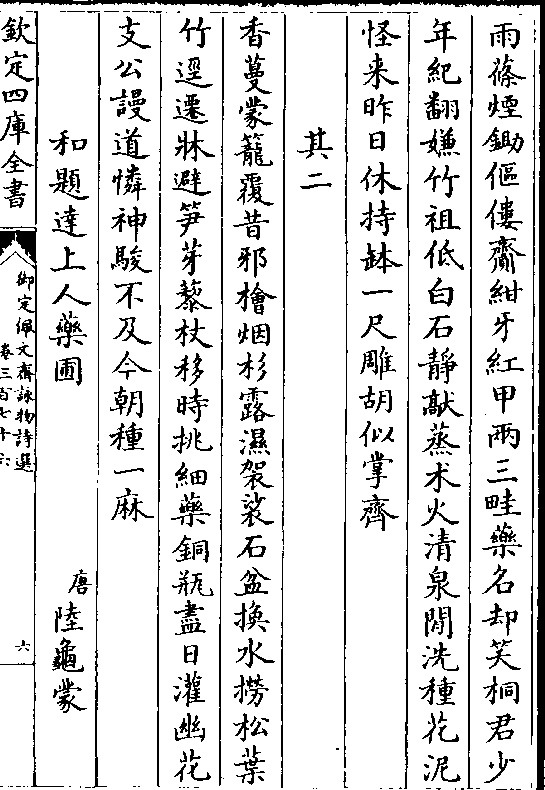 雨篠煙鋤傴僂齎紺牙紅甲兩三畦藥名却笑桐君少
年紀翻嫌竹祖低白石靜敲蒸术火清泉閒洗種花泥
怪来昨日休持缽一尺雕胡似掌齊
其二
香蔓蒙籠覆昔邪檜烟杉露濕袈裟石盆換水撈松葉
竹逕遷牀避笋芽藜杖移時挑細藥銅瓶盡日灌幽花
支公謾道憐神駿不及今朝種一麻
和題達上人藥圃
唐 陸龜蒙
欽定四庫全書
御定佩文齋詠物詩選
卷三百七十六
六